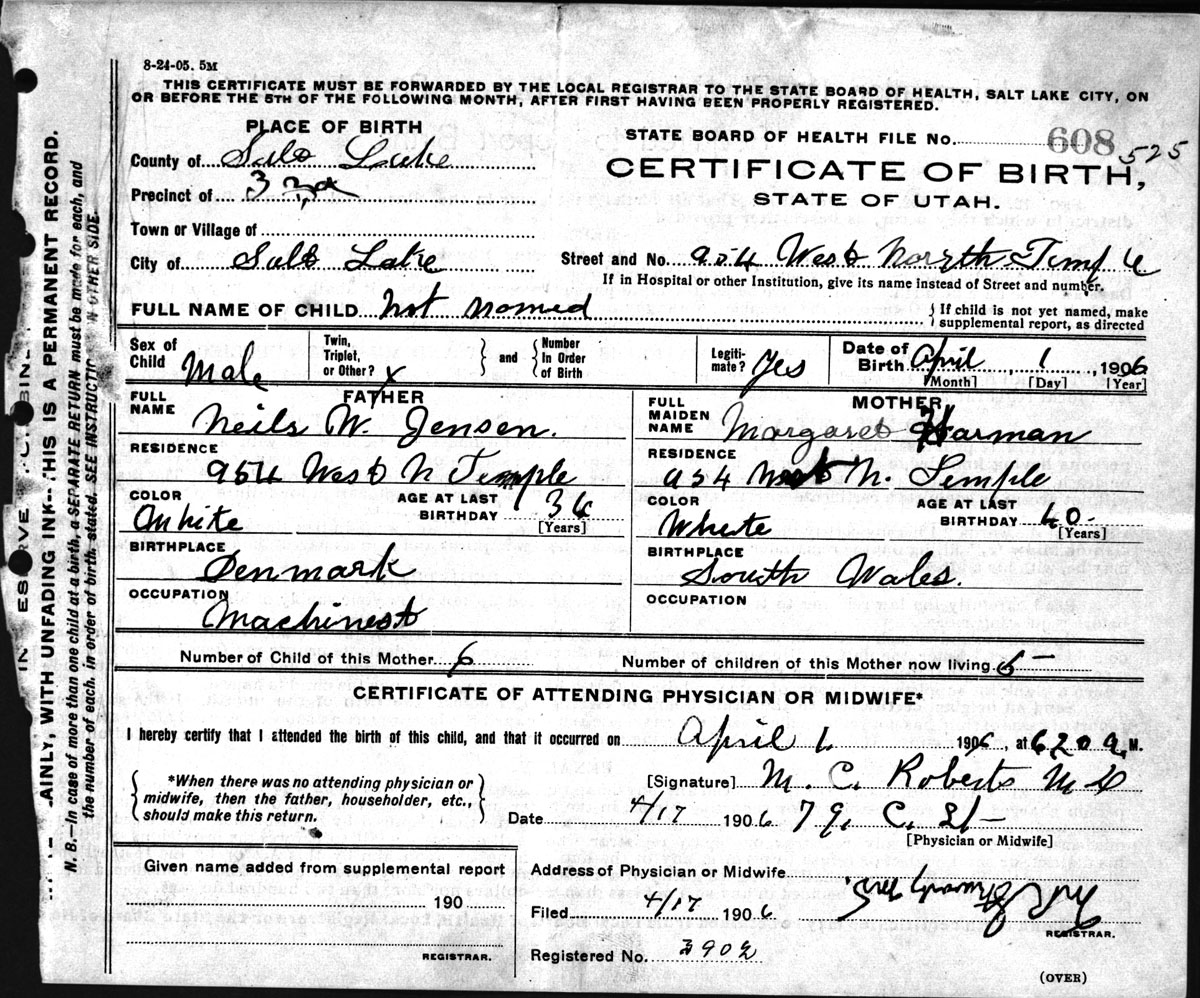 8-24-05. 5M
THIS CERTIFICATE MUST BE FORWARDED BY THE LOCAL REGISTRAR TO THE STATE BOARD OF HEALTH, SALT LAKE CITY, ON
OR BEFORE THE 5TH OF THE FOLLOWING MONTH, AFTER FIRST HAVING BEEN PROPERLY REGISTERED.
PLACE OF BIRTH
STATE BOARD OF HEALTH FILE No. 608 525
County of Salt Lake
CERTIFICATE OF BIRTH,
Precinct of 3rd
STATE OF UTAH.
Town or Village of
City of Salt Lake
Street and No. 954 West North Temple
If in Hospital or other Institution, give its name instead of Street and number.
FULL NAME OF CHILD Not named
If child is not yet named, make
supplemental report, as directed
Sex of Child Male
Twin, Triplet, or Other? x
and
Number In Order of Birth
Legiti-mate? Yes
Date of Birth April 1, 1906
[Month] [Day] [Year]
FATHER
FULL NAME Neils W. Jensen.
RESIDENCE
954 West N Temple
COLOR White
AGE AT LAST BIRTHDAY 34
[Years]
BIRTHPLACE Denmark
OCCUPATION Machinest
MOTHER
FULL MAIDEN NAME Margaret Harman
RESIDENCE
954 West N. Temple
COLOR White
AGE AT LAST BIRTHDAY 40
[Years]
BIRTHPLACE South Wales.
OCCUPATION
Number of Child of this Mother 6
Number of children of this Mother now living.
CERTIFICATE OF ATTENDING PHYSICIAN OR MIDWIFE*
I hereby certify that I attended the birth of this child, and that it occurred on April 1, 1906, at 620 a M.
*When there was no attending physician or
midwife, then the father, householder, etc.,
should make this return.
[Signature] M. C. Roberts M D
Date 4/17 1906
[Physician or Midwife]
Given name added from supplemental report
190
REGISTRAR.
Address of Physician or Midwife
Filed 4/17 1906
REGISTRAR.
Registered No. 3902
(OVER)
AINLY, WITH UNFADING INK--THIS IS A PERMANENT RECORD.
N. B.—In case of more than one child at a birth, a SEPARATE RETURN must be made for each, and
the number of each, in order of birth stated. SEE INSTRUCTIONS ON OTHER SIDE.